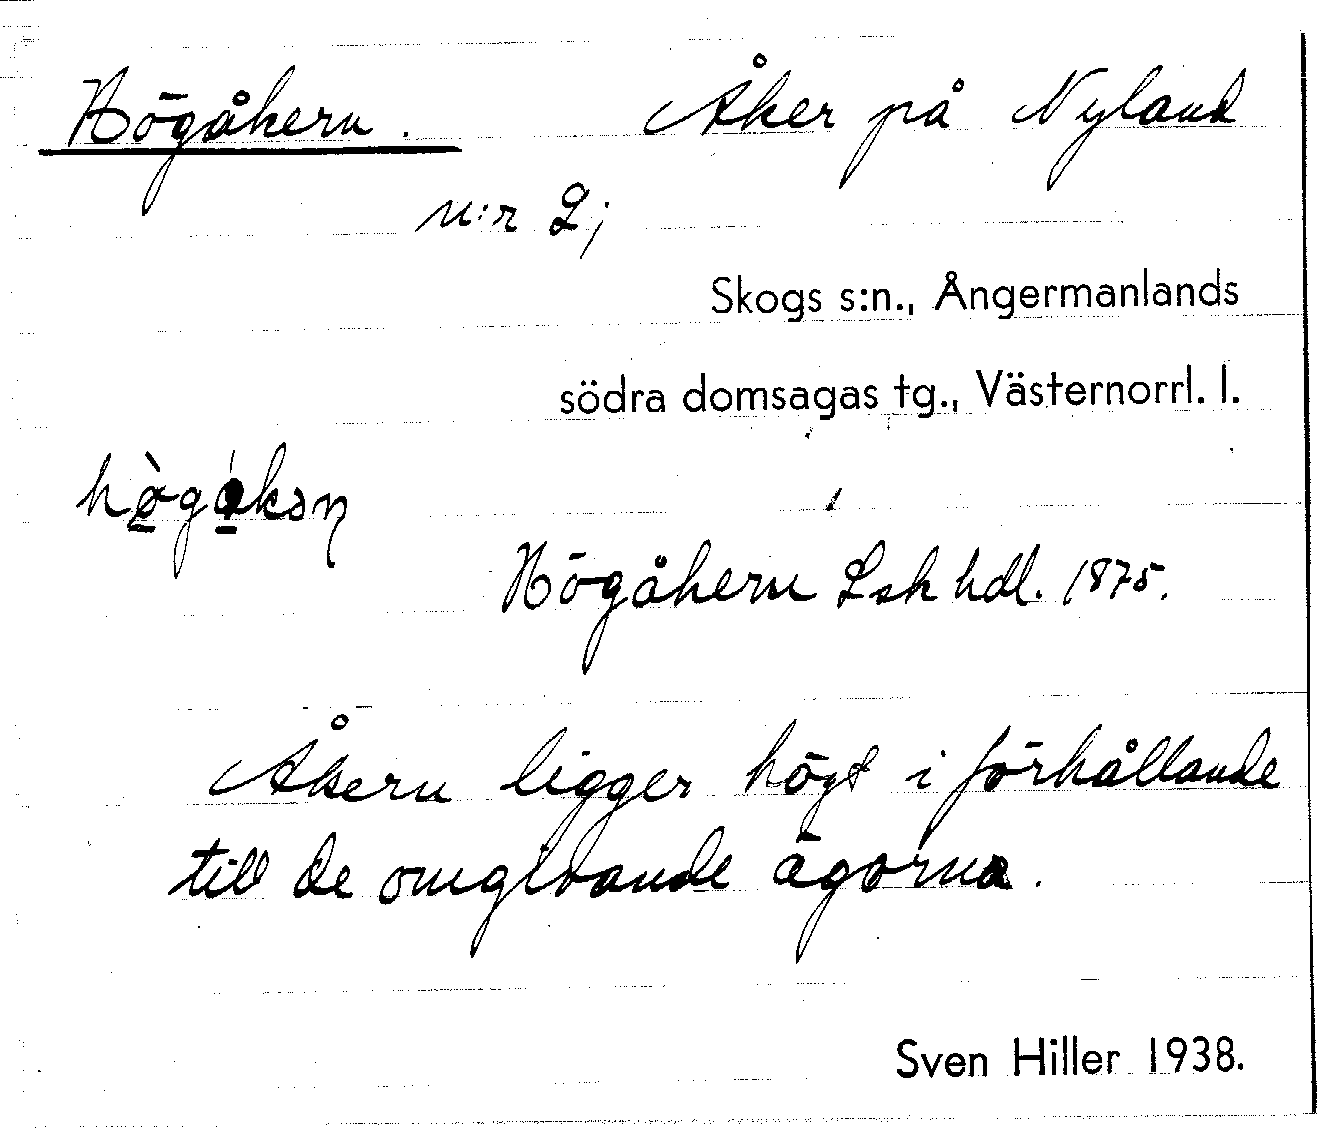 Högåkern. Åker på Nyland
n:r 2;
Skogs s:n., Ångermanlands
södra domsagas tg., Västernorrl. l.
Högåkern Lsk hdl. 1875.
Åkern ligger högt i förhållande
till de omgivande ägorna.
Sven Hiller 1938.